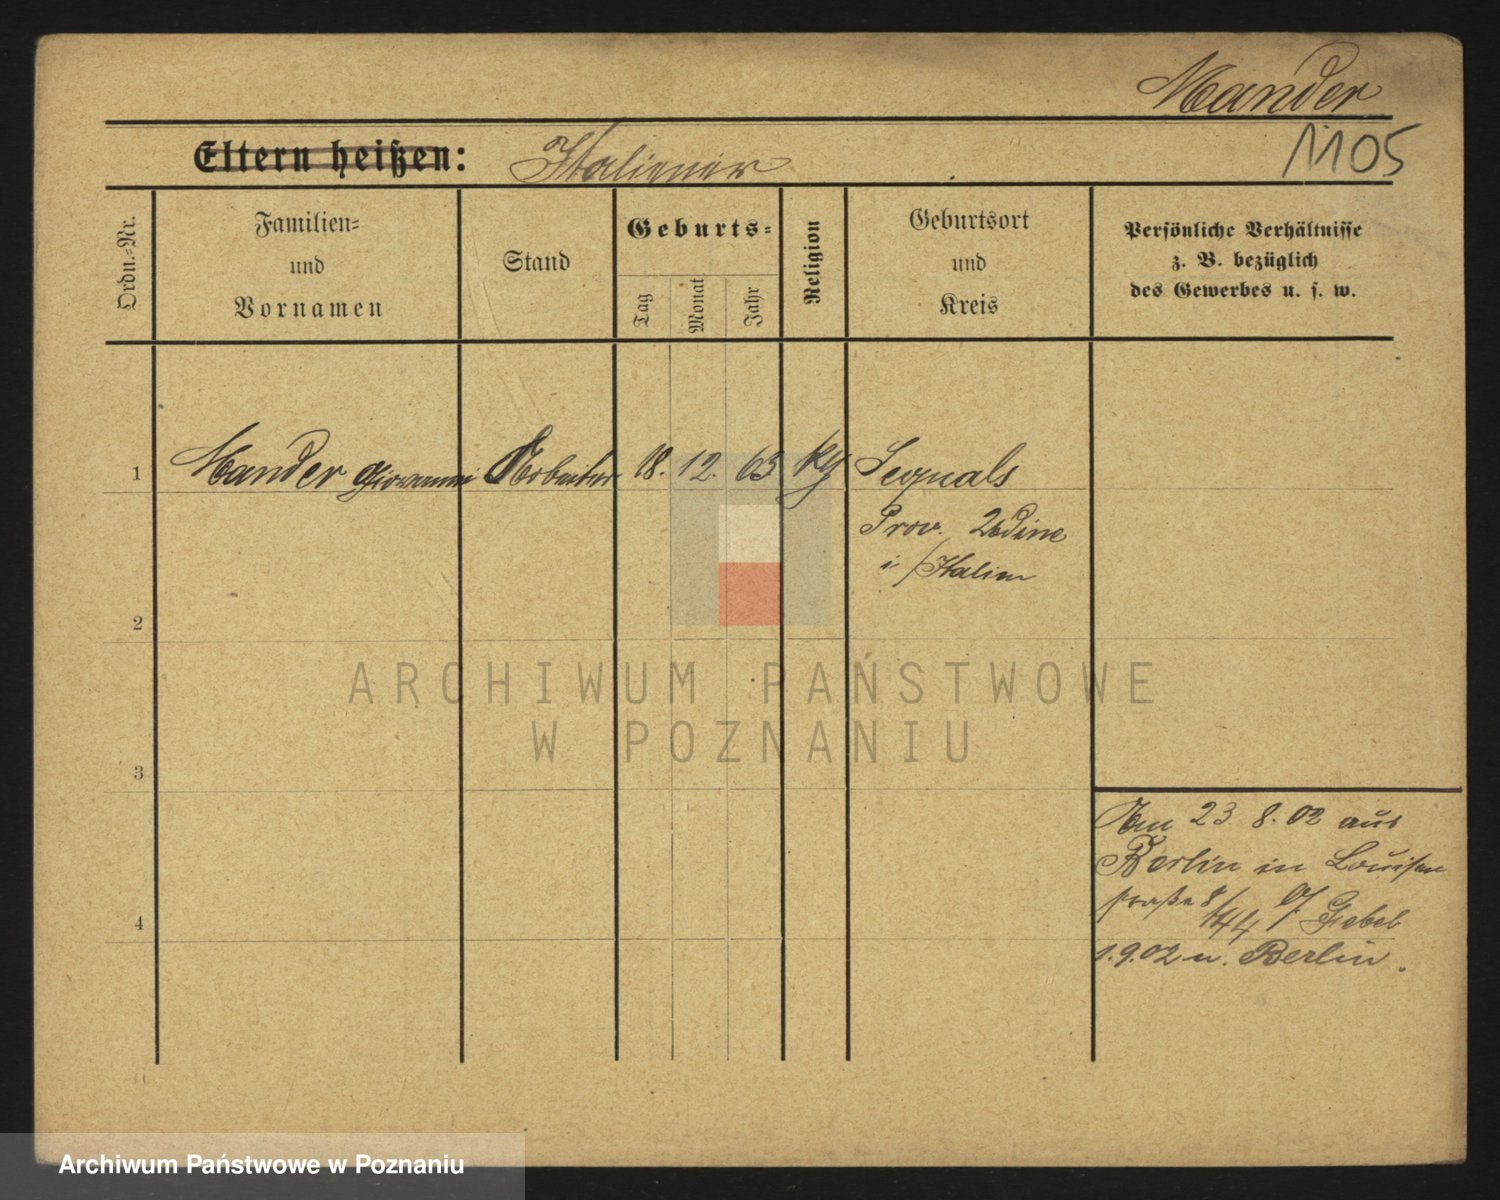 Mander
1105
Eltern heißen: Italiener
Ordn.-Nr.
Familien-
und
Vornamen
Stand
Geburts-
Tag
Monat
Jahr
Religion
Geburtsort
und
Kreis
Persönliche Verhältnisse
z. B. bezüglich
des Gewerbes u. s. w.
1 Mander Giovanni Arbeiter 18. 12. 63 Sequals
Prov. Udine
i/Italien
2
3
4
ARCHIWUM PAŃSTWOWE
W POZNANIU
Am 23. 8. 02 aus
Berlin in Louisen
straße 8/144 Giebel
1.9.02 n. Berlin.
Archiwum Państwowe w Poznaniu